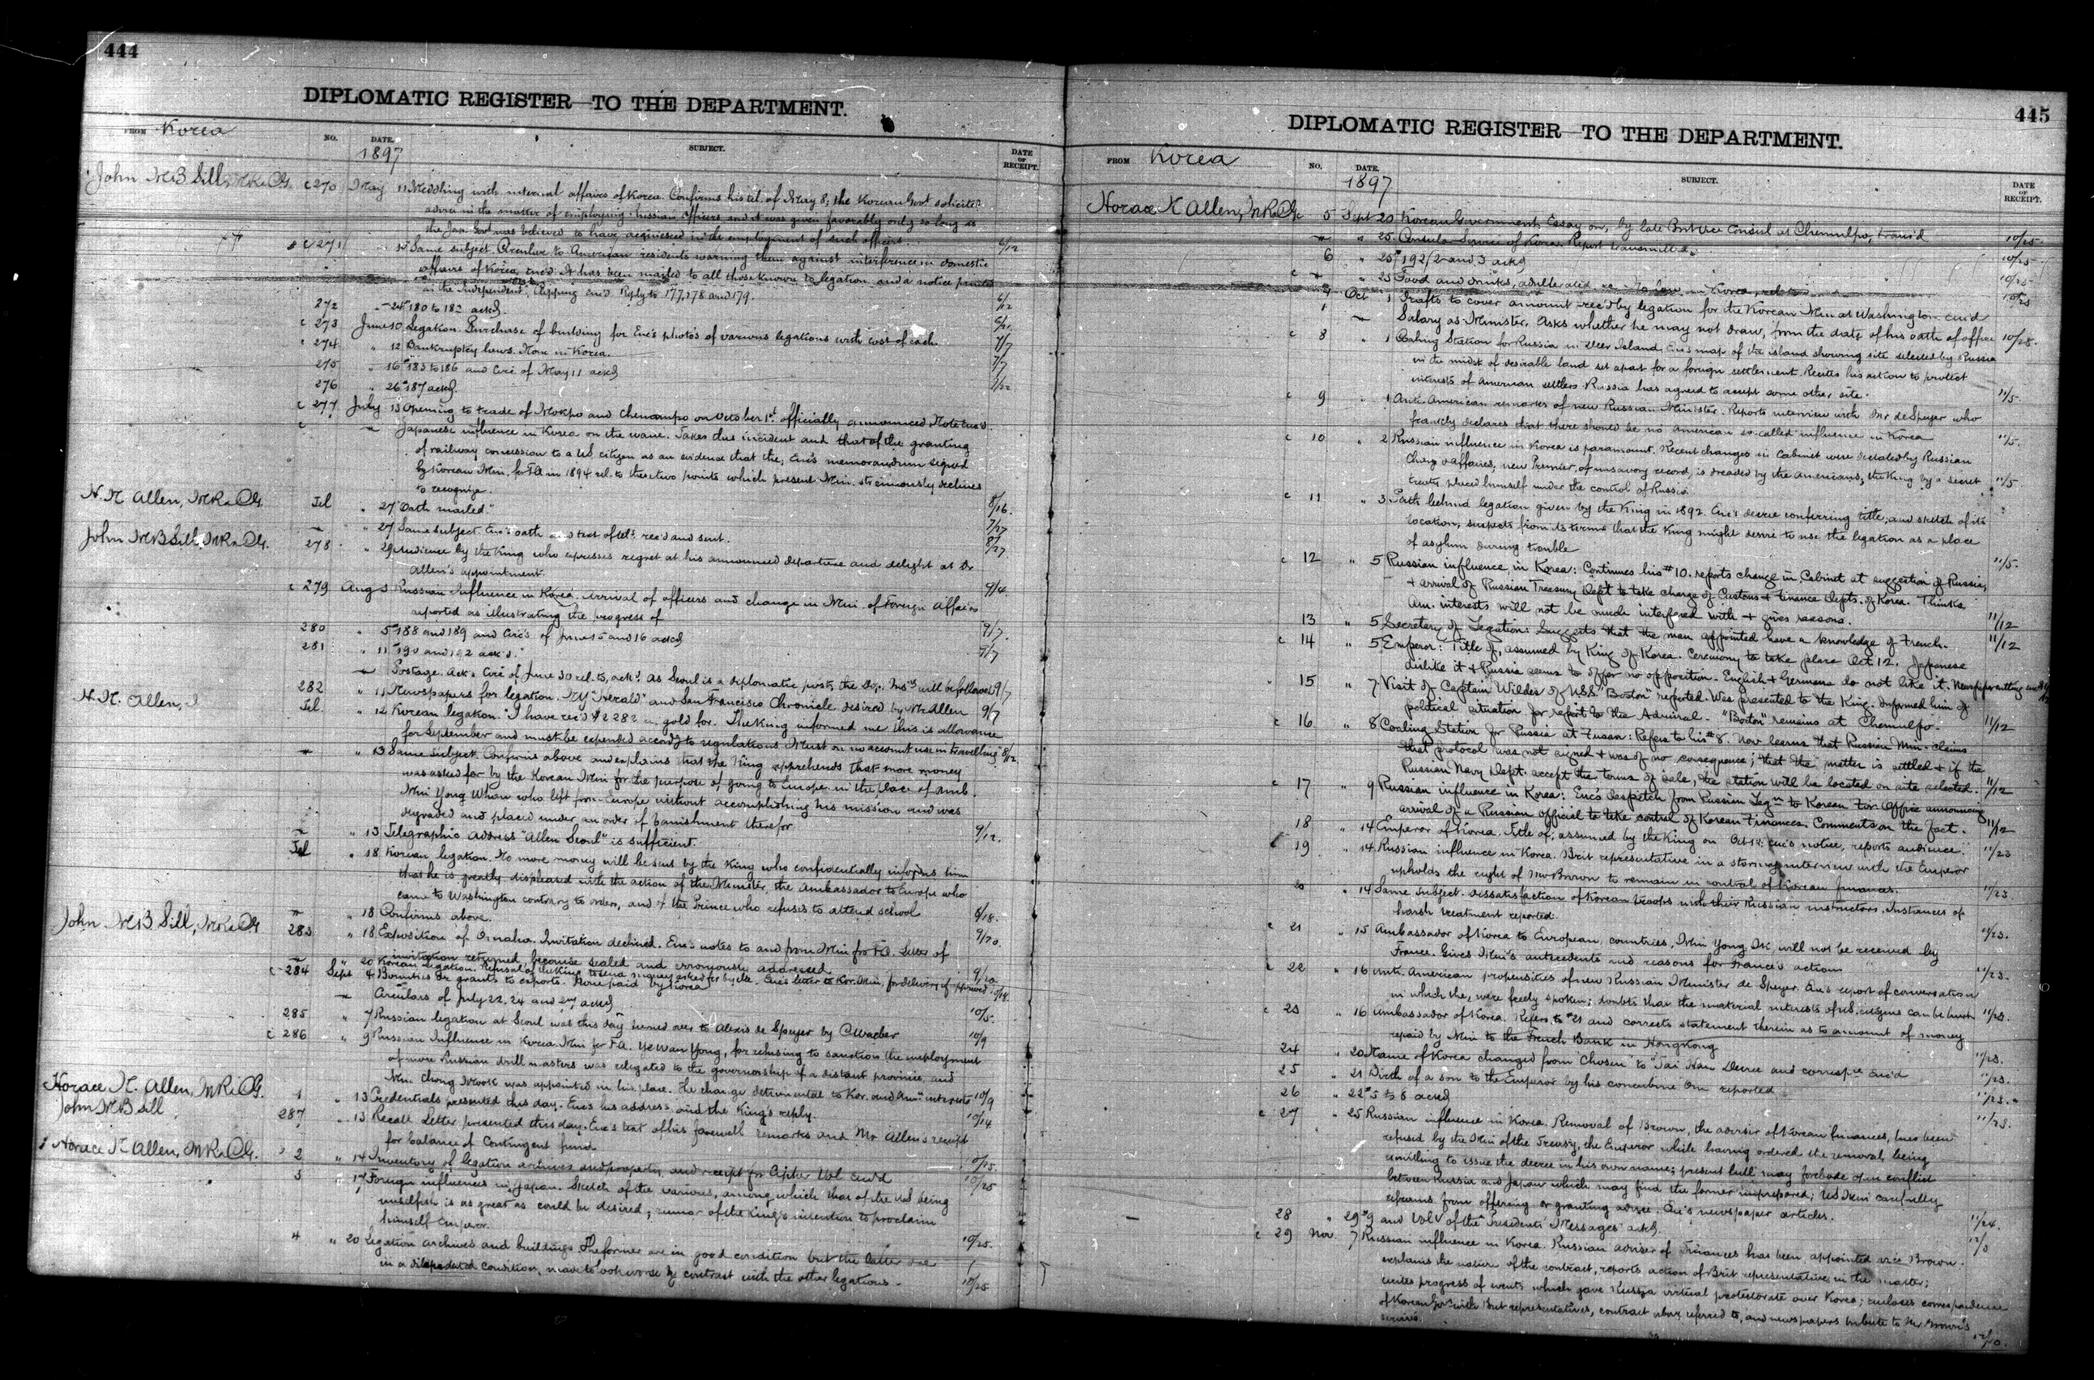 444
DIPLOMATIC REGISTER TO THE DEPARTMENT.
FROM Korea
NO. DATE. SUBJECT. DATE OF RECEIPT.
1897
John M B Sill, M.R. & C.G. c 270 May 11 Meddling with internal affairs of Korea. Confirms his tel. of May 8; the Korean Govt solicited
advice in the matter of employing Russian officers and it was given favorably only so long as
the Jap. Govt was believed to have acquiesced in the employment of such officers.
c 271 Same subject. Circular to American residents warning them against interference in domestic 6/12
affairs of Korea, enc'd. It has been mailed to all those known to legation and a notice printed
in the "Independent". Clipping enc'd. Reply to 177, 178 and 179.
272 " 24 180 to 182 ackd.
c 273 June 10 Legation. Purchase of building for. Enc's photo's of various legations with cost of each.
c 274 " 12 Bankruptcy laws. None in Korea. 7/7
275 " 16 183 to 186 and Circ of May 11 ackd 7/7
276 " 26 187 ackd. 7/22
c 277 July 13 Opening to trade of Mokpo and Chenampo on October 1st officially announced. Note enc'd.
c Japanese influence in Korea on the wane. Takes due incident and that of the granting
of railway concession to a US citizen as an evidence that the; Enc's memorandum signed
by Korean Min. for FA in 1894 rel. to these two points which present Min. strenuously declines
to recognize. 8/16.
H. N Allen, M.R. & C.G. Tel " 27 "Oath mailed." 7/27
" 27 Same subject. Enc's oath and text of tels. rec'd and sent. 8/27
John M B Sill, M.R. & C.G. 278 " 29 Audience by the King who expresses regret at his announced departure and delight at Dr
Allen's appointment. 9/4.
c 279 Aug 3 Russian Influence in Korea. Arrival of officers and change in Min. of Foreign Affairs
reported as illustrating the progress of 9/7.
280 " 5 188 and 189 and Circ's of June 15 and 16 ackd 9/7
281 " 11 190 and 192 ack'd.
Postage. Ack's Circ of June 30 rel. to, ack'd. As Seoul is a diplomatic post, the Dep. Ins'ns will be followed 9/7
282 " 11 Newspapers for legation. NY "Herald" and San Francisco Chronicle desired by Mr Allen 9/7
H. N. Allen, Tel " 12 Korean legation. "I have rec'd $2282 in gold for. The King informed me this is allowance
for September and must be expended accordg to regulations. Must on no account use in travelling" 8/12.
" 13 Same subject. Confirms above and explains that the King apprehends that more money
was asked for by the Korean Min for the purpose of going to Europe in the place of Amb.
Min Yong Whan who left for Europe without accomplishing his mission and was
degraded and placed under an order of banishment therefor
" 13 Telegraphic address "Allen Seoul" is sufficient. 9/12.
Tel " 18 Korean legation. No more money will be sent by the King who confidentially informs him
that he is greatly displeased with the action of the Minister, the Ambassador to Europe who
came to Washington contrary to orders, and of the Prince who refuses to attend school 8/18.
" 18 Confirms above. 9/20.
John M B Sill, M.R. & C.G. 283 " 18 Exposition of Omaha. Invitation declined. Enc's notes to and from Min for FA. Letter of
invitation returned, because sealed and erroneously addressed.
" 20 Korean Legation. Refusal of the King to send money asked for by the. Enc's letter to Kor. Min, for delivery if approved.
c 284 Sept 4 Bounties or grants to exports. None paid by Korea
Circulars of July 22, 24 and ackd 10/5.
285 " 7 Russian legation at Seoul was this day turned over to Alexis de Speyer by C. Waeber 10/9
c 286 " 9 Russian Influence in Korea. Min for FA. Ye Wan Yong, for refusing to sanction the employment
of more Russian drill masters was relegated to the governorship of a distant province, and
Min Chong Mook was appointed in his place. The change detrimental to Kor. and Amn interests 10/9
Horace N. Allen, M.R. & C.G. 1 " 13 Credentials presented this day. Enc's his address and the King's reply. 10/14
John M B Sill 287 " 13 Recall Letter presented this day. Enc's text of his farewell remarks and Mr Allen's receipt
for balance of Contingent fund.
Horace N Allen, M.R. & C.G. 2 " 14 Inventory of legation archives and property, and receipt for Cipher Vol. enc'd 10/25
3 " 17 Foreign influences in Japan. Sketch of the various, among which that of the US being
unselfish is as great as could be desired; rumor of the King's intention to proclaim
himself Emperor. 10/25.
4 " 20 Legation archives and buildings. The former are in good condition but the latter are
in a dilapidated condition, made to look worse by contrast with the other legations. 10/25
445
DIPLOMATIC REGISTER TO THE DEPARTMENT.
FROM Korea
NO. DATE. SUBJECT. DATE OF RECEIPT.
1897
Horace N Allen, M.R. & C.G. 5 Sept 20 Korean Government. Essay on, by late Brit vice Consul at Chemulpo, transd 10/25.
" 25. Consular Service of Korea. Report transmitted. 10/25
6 " 25 192, 2 and 3 ackd 10/25
c " 25 Food and drinks, adulterated. No law in Korea, rel. to 10/25
7 Oct 1 Drafts to cover amount rec'd by legation for the Korean Min. at Washington enc'd
Salary as Minister. Asks whether he may not draw, from the date of his oath of office 10/28.
c 8 " 1 Coaling Station for Russia in Deer Island. Enc's map of the island showing site selected by Russia
in the midst of desirable land set apart for a foreign settlement. Recites his action to protect
interests of American settlers. Russia has agreed to accept some other site. 11/5.
c 9 " 1 Anti-American remarks of new Russian Minister. Reports interview with Mr de Speyer who
frankly declares that there should be no American so-called influence in Korea 11/5.
c 10 " 2 Russian influence in Korea is paramount. Recent changes in Cabinet were dictated by Russian
Charge d'affaires; new Premier, of unsavory record, is dreaded by the Americans; the King by a secret
treaty placed himself under the control of Russia 11/5
c 11 " 3 Path behind legation given by the King in 1892. Enc's decree conferring title, and sketch of its
location; suspects from its terms that the King might desire to use the legation as a place
of asylum during trouble 11/5.
c 12 " 5 Russian influence in Korea: Continues his #10. reports change in Cabinet at suggestion of Russia,
+ arrival of Russian Treasury Dept to take charge of Customs + Finance Depts. of Korea. Thinks
Am. interests will not be much interfered with + gives reasons. 11/12
13 " 5 Secretary of Legation: Suggests that the man appointed have a knowledge of French. 11/12
c 14 " 5 Emperor: Title of, assumed by King of Korea. Ceremony to take place Oct 12. Japanese
dislike it + Russia seems to offer no opposition. English + Germans do not like it. Newspaper cutting enc.
15 " 7 Visit of Captain Wildes of USS "Boston" reported. Was presented to the King. Informed him of
political situation for report to the Admiral. "Boston" remains at Chemulpo. 11/12
c 16 " 8 Coaling Station for Russia at Fusan: Refers to his #8. Now learns that Russian Min. claims
that protocol was not signed + was of no consequence; that the matter is settled + if the
Russian Navy Dept. accept the terms of sale, the station will be located on site selected. 11/12
c 17 " 9 Russian influence in Korea: Enc's despatch from Russian Legn to Korean For. Office announcing
arrival of a Russian official to take control of Korean Finances. Comments on the fact. 11/12
18 " 14 Emperor of Korea. Title of; assumed by the King on Oct 12; enc's notice, reports audience. 11/23
19 " 14 Russian influence in Korea. Brit representative in a stormy interview with the Emperor
upholds the right of McBrown to remain in control of Korean finances. 11/23
20 " 14 Same subject. Dissatisfaction of Korean troops with their Russian instructors. Instances of
harsh treatment reported. 11/23.
c 21 " 15 Ambassador of Korea to European, countries, Min Yong Ik, will not be received by
France. Gives Min's antecedents and reasons for France's action 11/23.
c 22 " 16 Anti-American propensities of new Russian Minister de Speyer. Enc's report of conversation
in which they were freely spoken; doubts that the material interests of US. citizens can be hurt 11/23.
c 23 " 16 Ambassador of Korea. Refers to #21 and corrects statement therein as to amount of money
repaid by Min to the French Bank in Hongkong 11/23.
24 " 20 Name of Korea changed from "Chosen" to "Tai Han". Decree and correspce enc'd 11/23.
25 " 21 Birth of a son to the Emperor by his concubine Om reported 11/23.
26 " 22 #5 to 8 ackd 11/23.
c 27 " 25 Russian influence in Korea. Removal of Brown, the adviser of Korean finances, has been
refused by the Min of the Treasury, the Emperor while having ordered the removal, being
unwilling to issue the decree in his own name; present lull may forbode open conflict
between Russia and Japan which may find the former unprepared; US Min carefully
refrains from offering or granting advice. Enc's newspaper articles. 11/24.
28 " 29 #9 and Vol V of the "Presidents' Messages" ackd. 12/3
c 29 Nov. 7 Russian influence in Korea. Russian adviser of Finances has been appointed vice Brown.
explains the nature of the contract, reports action of Brit representative in the matter;
recites progress of events which gave Russia virtual protectorate over Korea; encloses correspondence
of Korean Govt with Brit representatives, contract above referred to, and newspapers tribute to Mr Brown's
services.